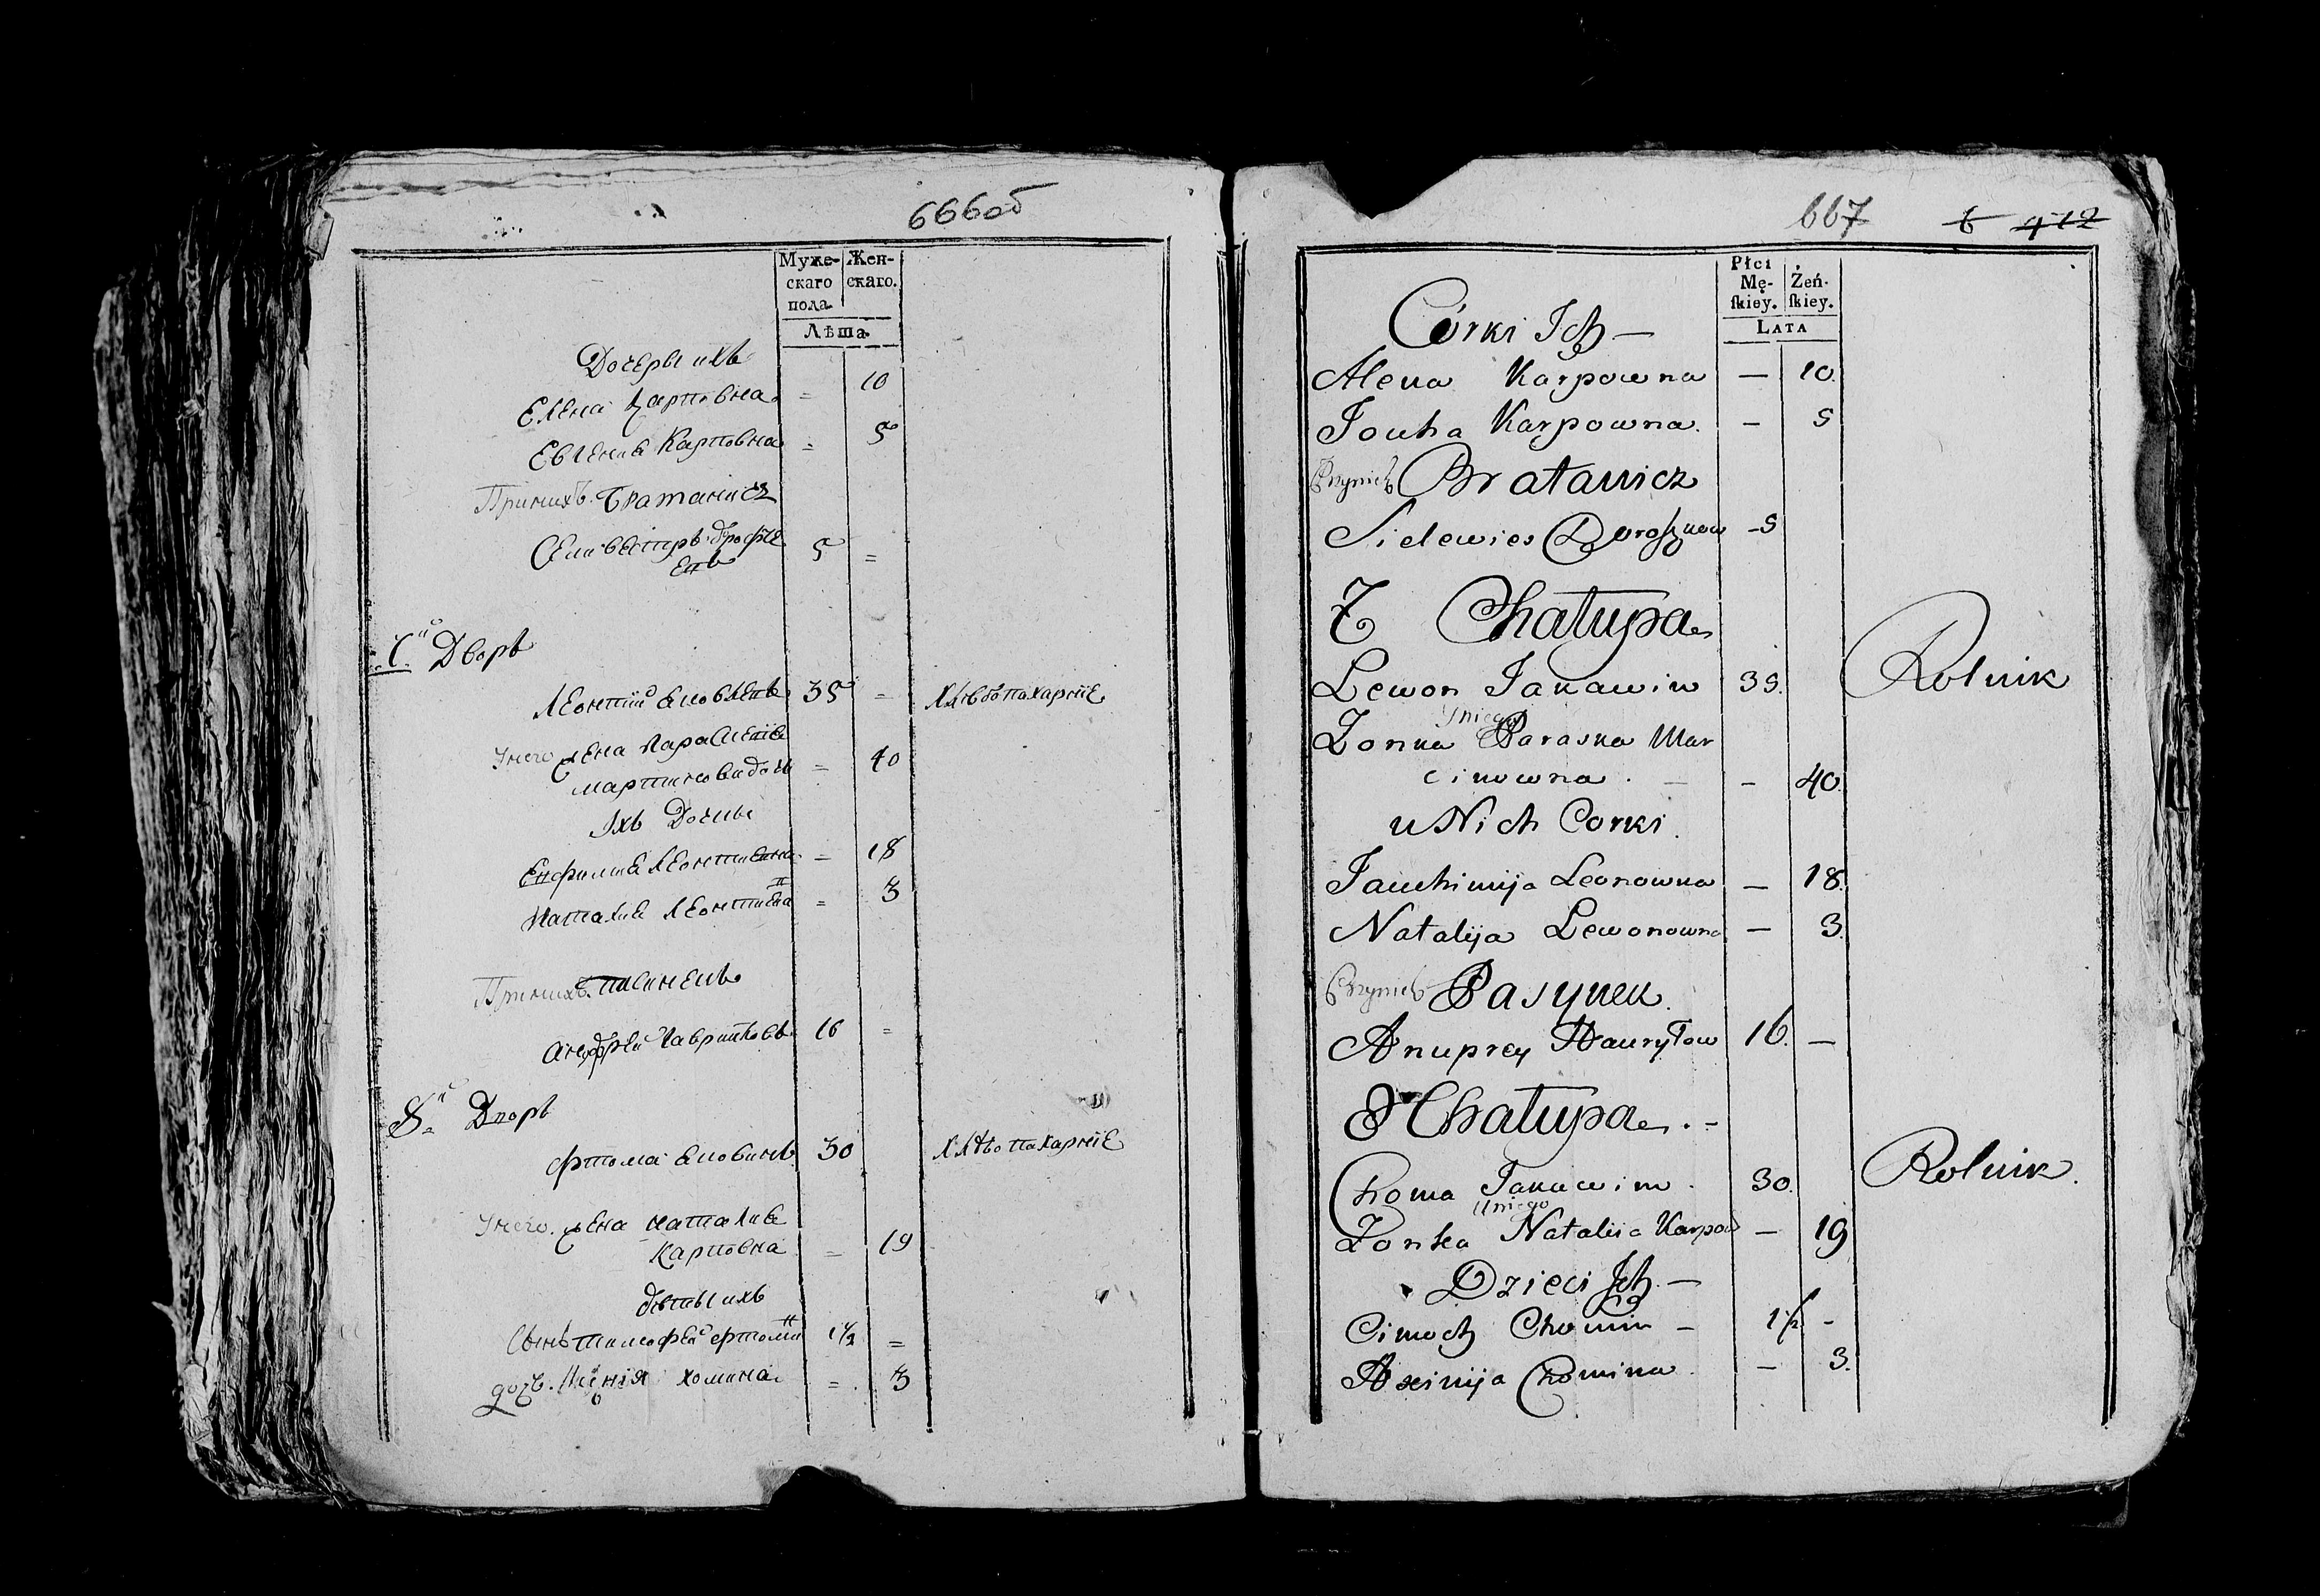 666об
Муже-
скаго
пола.
Жен-
скаго.
Лѣта
Дочеры ихъ
Елена Карповна = 10
Евгениа Карповна = 5
При нихъ Братаничъ
Селивестръ 5 =
Дворъ
Леонтий 35 = Хлѣбопахарние
У него жена Параскевиа
мартинова дочь = 40
Ихъ Дочки
Леонтиевна = 18
Наталиа Леонтиева = 3
При нихъ пасинекъ
16 =
8й Дворъ
30 Хлѣбопахарние
У него жена Наталиа
Карповна = 19
дѣты ихъ
Сынъ тимофей 1½ =
дочь хомина = 3
667 6 412
Płci
Mę-
ſkiey.
Żeń-
ſkiey.
LATA
Córki Ich —
Alena Karpowna — 10.
Jouha Karpowna. — 5
Przynich Bratanicz
Sielewies Doroszkow - 5
7 Chałupa
Lewon Jakawiw 35. Rolnik
U niego
Żonka Paraska Mar
cinowna. — — 40.
u Nich Corki.
Jauchimija Leonowna — 18.
Natalija Lewonowna — 3.
Przynich Pasynek.
Anuprey Hauryłow 16. —
8 Chałupa. -
Choma Jakawiw. 30. Rolnik.
U niego
Żonka Natalija Karpow — 19
Dzieci Ich. —
Cimoch Chomin — 1½ -
Axinija Chomina. — 3.